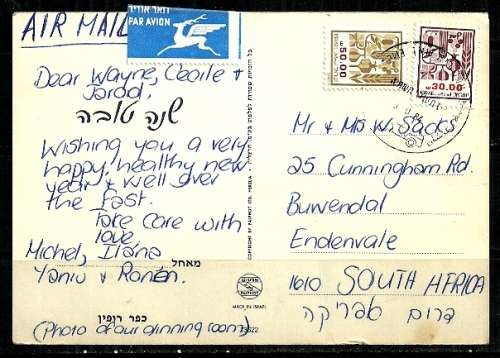 AIR MAIL
דואר אוויר
PAR AVION
Dear Wayne, Cecile &
Jarod,
שנה טובה
Wishing you a very
happy, healthy new
year & well over
the fast.
Take care with
love
Michel, Ilana
Yaniv & Ronen.
מאחל
כפר רופין
(Photo of our dinning room)
MADE IN ISRAEL
50.00
30.00
Mr & Mrs W. Sacks
25 Cunningham Rd.
Buwendal
Endenvale
1610 SOUTH AFRICA
דרום אפריקה